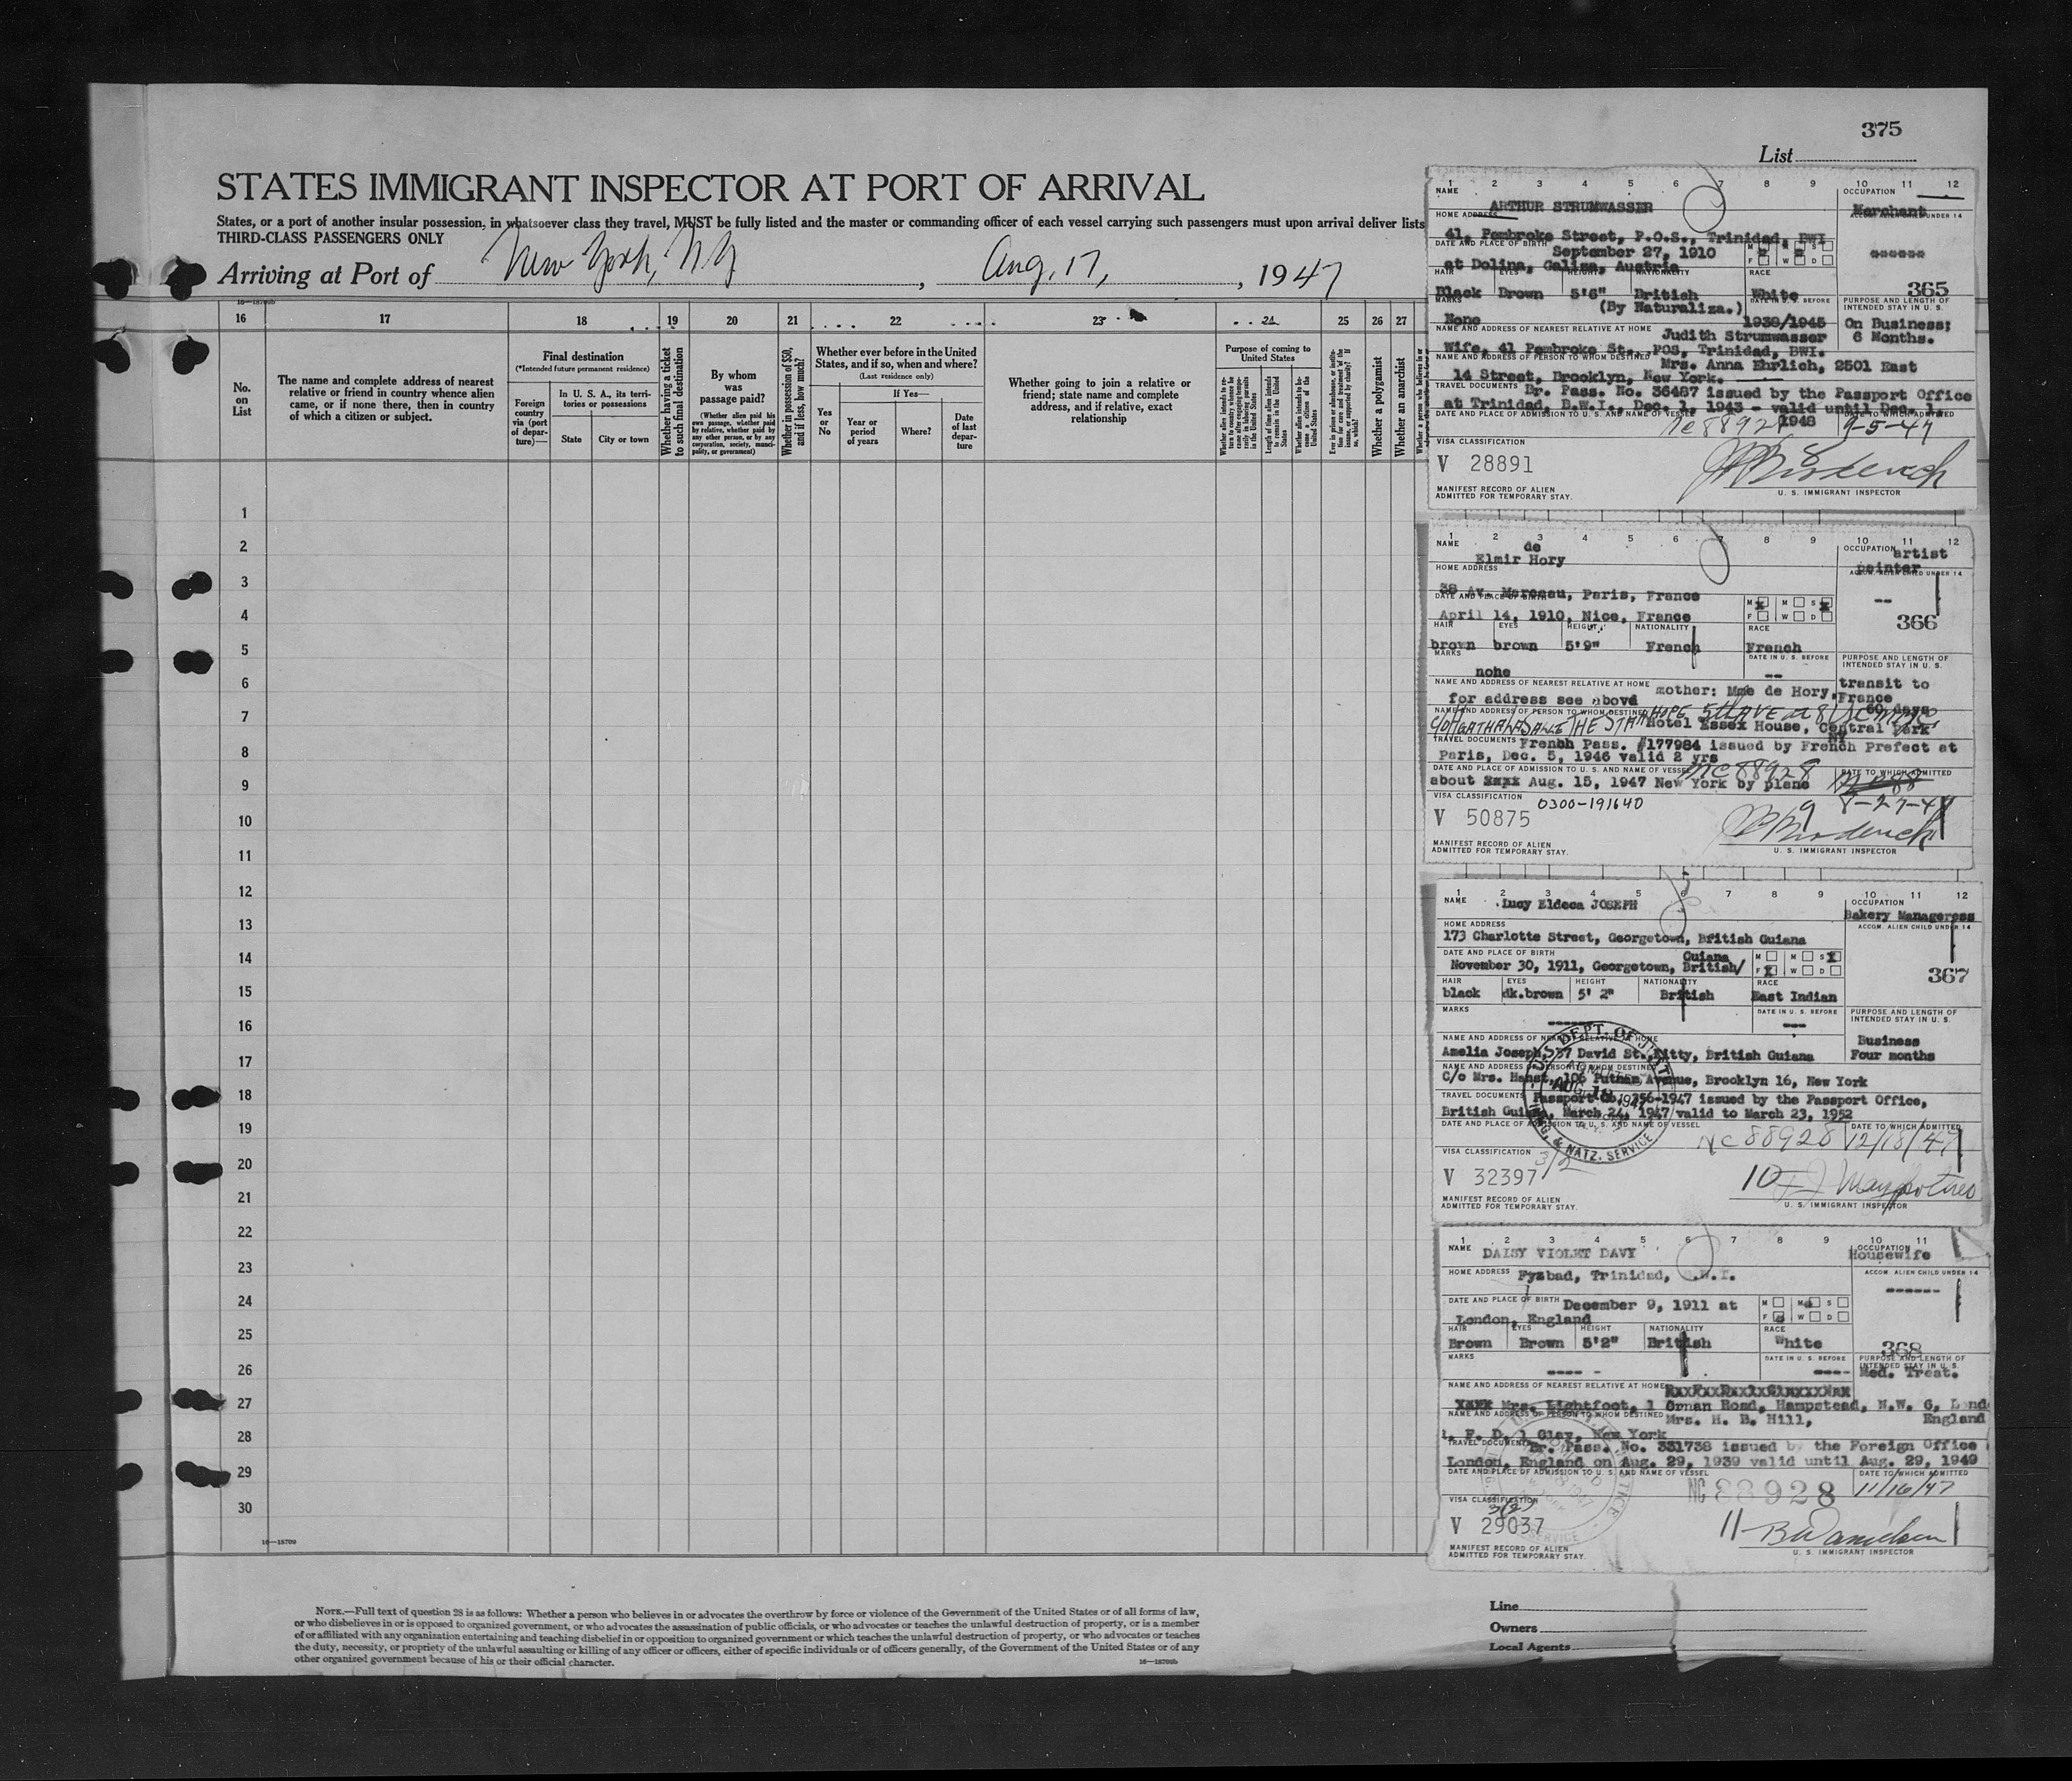 375
List
STATES IMMIGRANT INSPECTOR AT PORT OF ARRIVAL
States, or a port of another insular possession, in whatsoever class they travel, MUST be fully listed and the master or commanding officer of each vessel carrying such passengers must upon arrival deliver lists
THIRD-CLASS PASSENGERS ONLY
Arriving at Port of New York, NY, Aug. 17, 1947
16—18709b
16 17 18 19 20 21 22 23 24 25 26 27
No. on List
The name and complete address of nearest relative or friend in country whence alien came, or if none there, then in country of which a citizen or subject.
Final destination
(*Intended future permanent residence)
Foreign country via (port of departure)—
In U. S. A., its territories or possessions
State
City or town
Whether having a ticket to such final destination
By whom was passage paid?
(Whether alien paid his own passage, whether paid by relative, whether paid by any other person, or by any corporation, society, municipality, or government)
Whether in possession of $50, and if less, how much?
Whether ever before in the United States, and if so, when and where?
(Last residence only)
Yes or No
If Yes—
Year or period of years
Where?
Date of last departure
Whether going to join a relative or friend; state name and complete address, and if relative, exact relationship
Purpose of coming to United States
Length of time alien intends to remain in the United States
Whether alien intends to become a citizen of the United States
Whether a polygamist
Whether an anarchist
1
2
3
4
5
6
7
8
9
10
11
12
13
14
15
16
17
18
19
20
21
22
23
24
25
26
27
28
29
30
16—18709
NOTE.—Full text of question 28 is as follows: Whether a person who believes in or advocates the overthrow by force or violence of the Government of the United States or of all forms of law,
or who disbelieves in or is opposed to organized government, or who advocates the assassination of public officials, or who advocates or teaches the unlawful destruction of property, or is a member
of or affiliated with any organization entertaining and teaching disbelief in or opposition to organized government or which teaches the unlawful destruction of property, or who advocates or teaches
the duty, necessity, or propriety of the unlawful assaulting or killing of any officer or officers, either of specific individuals or of officers generally, of the Government of the United States or of any
other organized government because of his or their official character.
16—18709b
1 2 3 4 5 6 7 8 9 10 11 12
NAME
ARTHUR STRUMWASSER
OCCUPATION
Merchant
HOME ADDRESS
41, Pembroke Street, P.O.S., Trinidad, BWI
DATE AND PLACE OF BIRTH
September 27, 1910
at Dolina, Galiza, Austria
M M S
F W D
365
HAIR EYES HEIGHT NATIONALITY RACE
Black Brown 5'6" British White
(By Naturaliza.)
MARKS
None
DATE IN U. S. BEFORE
1939/1945
PURPOSE AND LENGTH OF INTENDED STAY IN U. S.
On Business;
6 Months.
NAME AND ADDRESS OF NEAREST RELATIVE AT HOME
Judith Strumwasser
Wife, 41 Pembroke St., POS, Trinidad, BWI.
NAME AND ADDRESS OF PERSON TO WHOM DESTINED
Mrs. Anna Ehrlich, 2501 East
14 Street, Brooklyn, New York.
TRAVEL DOCUMENTS
Br. Pass. No. 36487 issued by the Passport Office
at Trinidad, B.W.I., Dec. 1, 1943 - valid until Dec. 1,
1948
DATE AND PLACE OF ADMISSION TO U. S. AND NAME OF VESSEL
DATE TO WHICH ADMITTED
9-5-47
VISA CLASSIFICATION
V 28891
8
MANIFEST RECORD OF ALIEN
ADMITTED FOR TEMPORARY STAY.
U. S. IMMIGRANT INSPECTOR
1 2 3 4 5 6 7 8 9 10 11 12
NAME
de
Elmir Hory
OCCUPATION
artist
painter
ACCOM. ALIEN CHILD UNDER 14
--
HOME ADDRESS
38 Av. Marceau, Paris, France
DATE AND PLACE OF BIRTH
April 14, 1910, Nice, France
M M S
F W D
366
HAIR EYES HEIGHT NATIONALITY RACE
brown brown 5'9" French French
MARKS
none
DATE IN U. S. BEFORE
--
PURPOSE AND LENGTH OF INTENDED STAY IN U. S.
transit to
France
60 days
NAME AND ADDRESS OF NEAREST RELATIVE AT HOME
mother: Mme de Hory,
for address see above
NAME AND ADDRESS OF PERSON TO WHOM DESTINED
Hotel Essex House, Central Park
NY
TRAVEL DOCUMENTS
French Pass. #177984 issued by French Prefect at
Paris, Dec. 5, 1946 valid 2 yrs
DATE AND PLACE OF ADMISSION TO U. S. AND NAME OF VESSEL
NC 88928
about Aug. 15, 1947 New York by plane
DATE TO WHICH ADMITTED
VISA CLASSIFICATION
0300-191640
V 50875
9
MANIFEST RECORD OF ALIEN
ADMITTED FOR TEMPORARY STAY.
U. S. IMMIGRANT INSPECTOR
1 2 3 4 5 6 7 8 9 10 11 12
NAME
Lucy Eldeca JOSEPH
OCCUPATION
Bakery Manageress
ACCOM. ALIEN CHILD UNDER 14
HOME ADDRESS
173 Charlotte Street, Georgetown, British Guiana
DATE AND PLACE OF BIRTH
Guiana
November 30, 1911, Georgetown, British/
M M S
F W D
367
HAIR EYES HEIGHT NATIONALITY RACE
black dk.brown 5' 2" British East Indian
MARKS
DATE IN U. S. BEFORE
PURPOSE AND LENGTH OF INTENDED STAY IN U. S.
Business
Four months
NAME AND ADDRESS OF NEAREST RELATIVE AT HOME
Amelia Joseph, 37 David St., Kitty, British Guiana
NAME AND ADDRESS OF PERSON TO WHOM DESTINED
C/o Mrs. Hanst, 106 Putnam Avenue, Brooklyn 16, New York
TRAVEL DOCUMENTS
Passport No. 256-1947 issued by the Passport Office,
British Guiana, March 24, 1947 valid to March 23, 1952
DATE AND PLACE OF ADMISSION TO U. S. AND NAME OF VESSEL
NC 88928
DATE TO WHICH ADMITTED
12/18/47
VISA CLASSIFICATION
3/2
V 32397
10
MANIFEST RECORD OF ALIEN
ADMITTED FOR TEMPORARY STAY.
U. S. IMMIGRANT INSPECTOR
1 2 3 4 5 6 7 8 9 10 11
NAME
DAISY VIOLET DAVY
OCCUPATION
Housewife
ACCOM. ALIEN CHILD UNDER 14
HOME ADDRESS
Fyzbad, Trinidad, B.W.I.
DATE AND PLACE OF BIRTH
December 9, 1911 at
London, England
M M S
F W D
368
HAIR EYES HEIGHT NATIONALITY RACE
Brown Brown 5'2" British White
MARKS
DATE IN U. S. BEFORE
PURPOSE AND LENGTH OF INTENDED STAY IN U. S.
Med. Treat.
NAME AND ADDRESS OF NEAREST RELATIVE AT HOME
Mrs. Lightfoot, 1 Ornan Road, Hampstead, N.W. 6, Lond
England
NAME AND ADDRESS OF PERSON TO WHOM DESTINED
Mrs. H. B. Hill,
F. D. 1 Clay, New York
TRAVEL DOCUMENTS
Br. Pass. No. 331738 issued by the Foreign Office
London, England on Aug. 29, 1939 valid until Aug. 29, 1949
DATE AND PLACE OF ADMISSION TO U. S. AND NAME OF VESSEL
NC 88928
DATE TO WHICH ADMITTED
11/16/47
VISA CLASSIFICATION
3(2)
V 29037
11
MANIFEST RECORD OF ALIEN
ADMITTED FOR TEMPORARY STAY.
U. S. IMMIGRANT INSPECTOR
Line
Owners
Local Agents